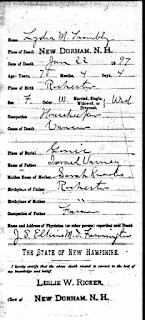 Name Lydia M. Trembly
Place of Death NEW DURHAM, N. H.
Date of Death Jan 22 1897
Age: Years, 78 Months, 4 Days, 4
Place of Birth Rochester
Sex F. Color W. Married, Single, Widowed or Divorced, Wed
Occupation Housekeeper
Cause of Death Cancer
Place of Burial Gonic
Name of Father Israel Varney
Maiden Name of Mother Sarah
Birthplace of Father Rochester
Birthplace of Mother "
Occupation of Father Farmer
Name and Address of Physician (or other person) reporting said Death
J. E. Elkins M.D. Farmington
THE STATE OF NEW HAMPSHIRE.
I hereby certify that the above death record is correct to the best of
my knowledge and belief.
LESLIE W. RICKER,
Clerk of NEW DURHAM, N. H.